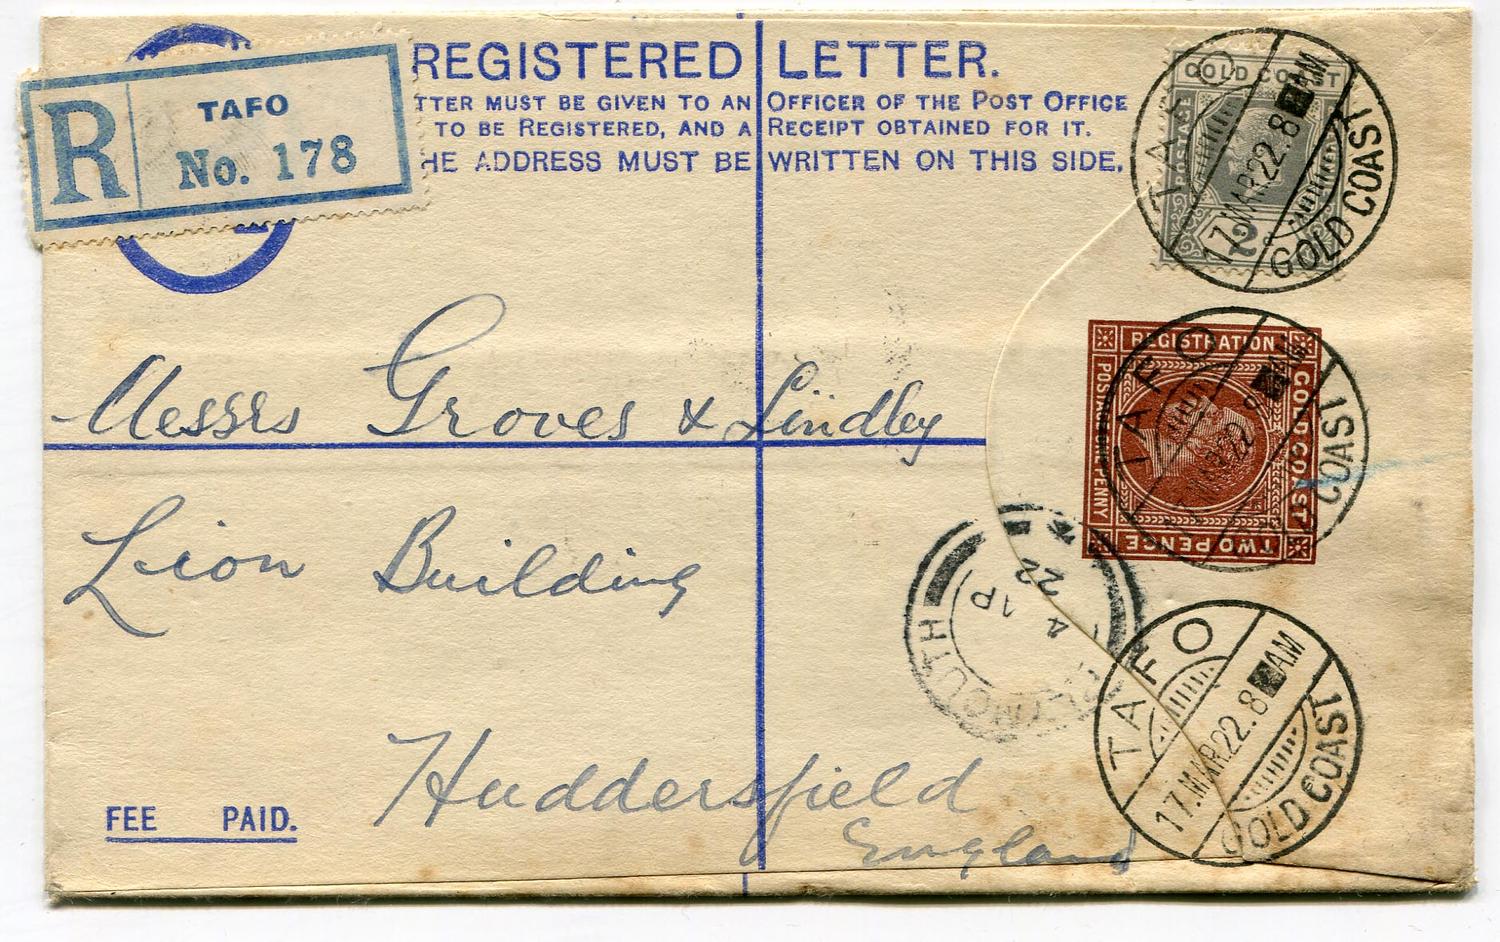 REGISTERED LETTER.
TTER MUST BE GIVEN TO AN OFFICER OF THE POST OFFICE
TO BE REGISTERED, AND A RECEIPT OBTAINED FOR IT.
HE ADDRESS MUST BE WRITTEN ON THIS SIDE.
R
TAFO
No. 178
GOLD COAST
POSTAGE
2
TAFO
17.MAR.22.8 AM
GOLD COAST
REGISTRATION
GOLD COAST
TWO PENCE
POSTAGE
PENNY
TAFO
17.MAR.22.8 AM
COAST
Messrs Groves & Lindley
Lion Building
Huddersfield
England
PLYMOUTH
4
1P
22
TAFO
17.MAR.22.8 AM
GOLD COAST
FEE PAID.